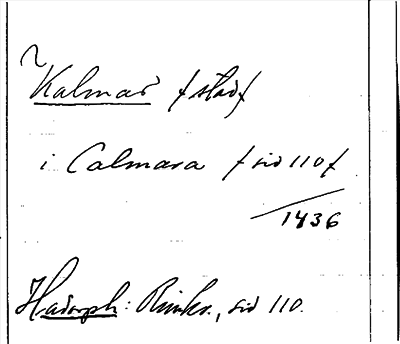 Kalmar /stad/
i Calmara /sid 110/
1436
Hadorph: Rimkr., sid 110.